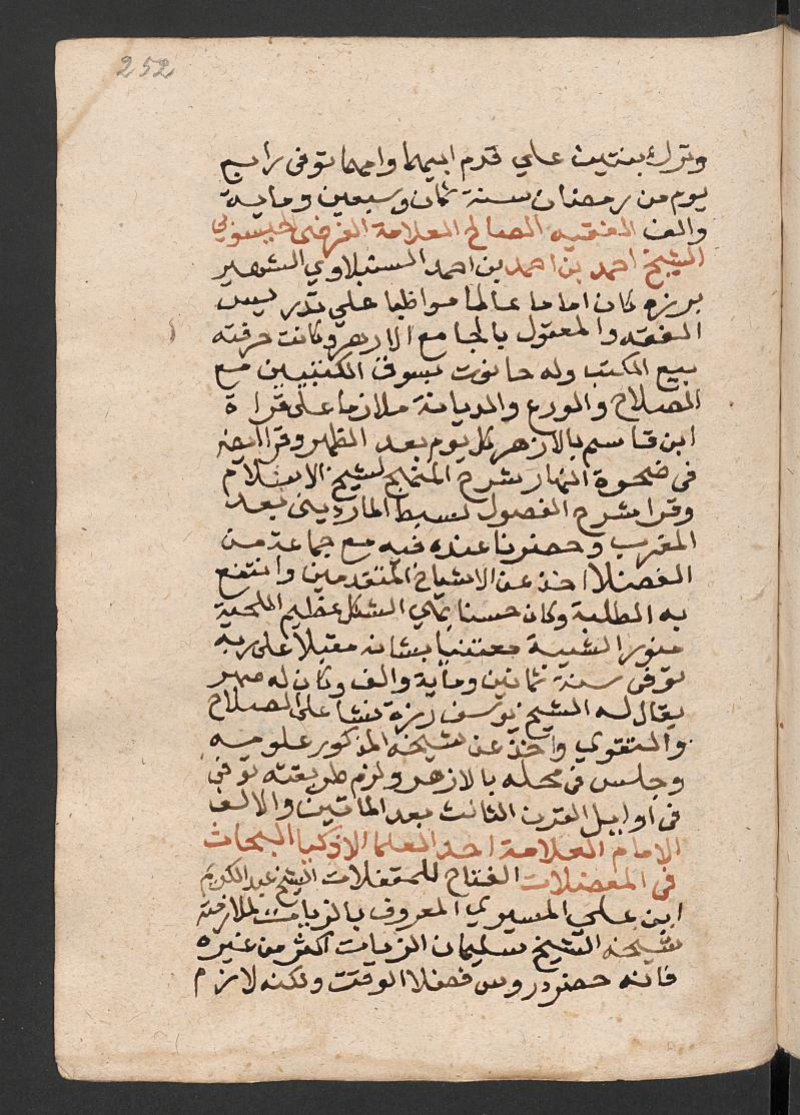 252
وترك بنتين علي قدم ابيهما وامهما توفى رابع
يوم من رمضان سنة ثمان وسبعين وماية
والف الفقيه الصالح العلامة الفرضى الحيسوبي
الشيخ احمد بن احمد بن احمد السنبلاوي الشهير
برزه كان اماما عالما مواظبا علي تدريس
الفقه والمعقول بالجامع الازهر وكانت حرفته
بيع الكتب وله حانوت بسوق الكتبيين مع
الصلاح والورع والديانة ملازما على قراة
ابن قاسم بالازهر كل يوم بعد الظهر وقرا ايضا
فى ضحوة النهار شرح المنهج لشيخ الاسلام
وقرا شرح الفصول لسبط الماردينى بعد
المغرب وحضرنا عنده فيه مع جماعة من
الفضلا اخذ عن الاشياخ المتقدمين وانتفع
به الطلبة وكان حسنا بهي الشكل عظيم اللحية
منور الشيبة معتنيا بشانه مقبلا على ربه
توفى سنة ثمانين وماية والف وكان له صهر
يقال له الشيخ يوسف رزة نشا على الصلاح
والتقوي واخذ عن شيخه المذكور علومه
وجلس فى محله بالازهر ولزم طريقته توفى
فى اوايل القرن الثالث بعد الماتين والالف
الامام العلامة احد العلما الاذكيا البحاث
فى المعضلات الفتاح للمقفلات الشيخ عبد الكريم
ابن علي المسيري المعروف بالزيات لملازمته
شيخه الشيخ سليمان الزيات اكثر من غيره
فانه حضر دروس فضلا الوقت ولكنه لازم